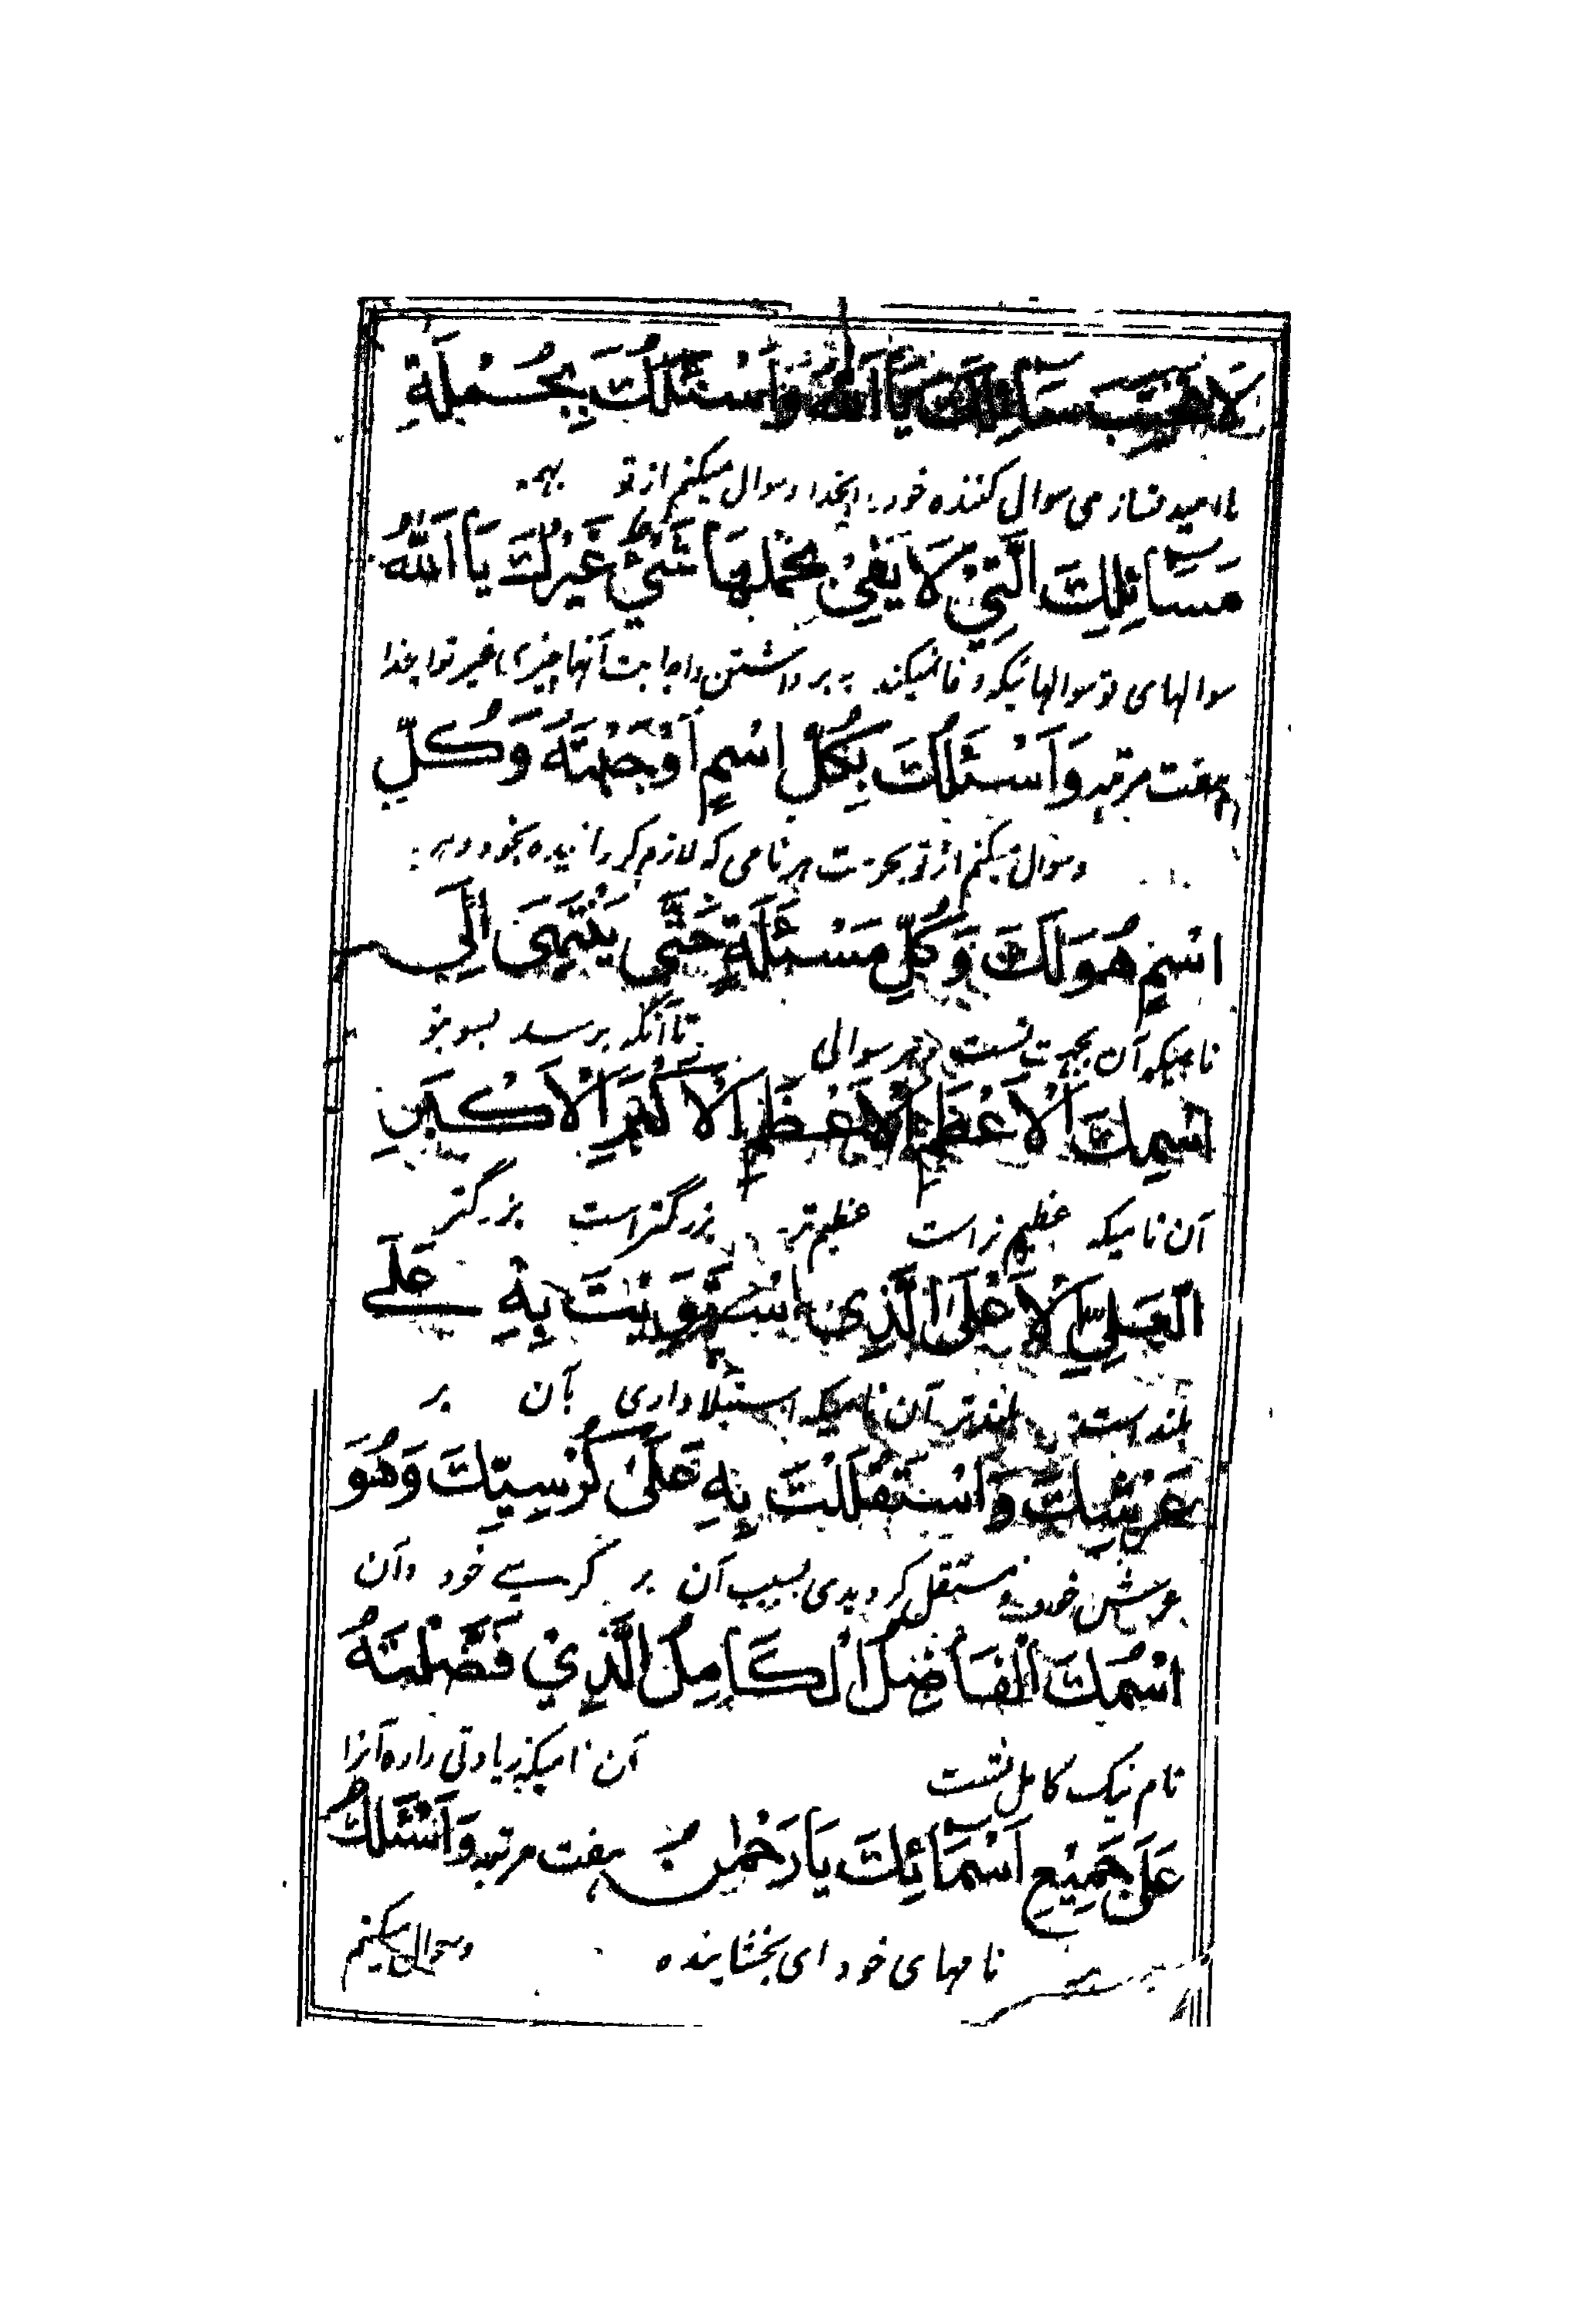 لَا تُخَيِّبْ سَائِلَكَ يَا اَللّٰهُ وَاَسْئَلُكَ بِجُمْلَةِ
سوال کننده خود ایخدا و سوال میکنم از تو بهمه
مَسَائِلِكَ الَّتِيْ لَا يَفِيْ بِحَمْلِهَا شَيْءٌ غَيْرُكَ يَا اَللّٰهُ
سوالهای تو سوالهائیکه وفا نمیکند به برداشتن آنها چیزی غیر تو ایخدا
هفت مرتبه وَاَسْئَلُكَ بِكُلِّ اسْمٍ اَوْجَبْتَهُ وَكُلِّ
و سوال میکنم از تو بحرمت هر نامی که لازم گردانیده بخود و هر
اسْمٍ هُوَ لَكَ وَكُلِّ مَسْئَلَةٍ حَتّٰى يَنْتَهِيَ اِلَى
نامیکه آن بجهت تست و هر سوالی تا آنکه برسد بسوی
اسْمِكَ الْاَعْظَمِ الْاَعْظَمِ الْاَكْبَرِ الْاَكْبَرِ
آن نامیکه عظیم تر است عظیم تر بزرگتر است بزرگتر
الْعَلِيِّ الْاَعْلَى الَّذِي اسْتَوَيْتَ بِهِ عَلٰى
بلند است بلندتر آن نامیکه استیلا داری بآن بر
عَرْشِكَ وَاسْتَقْلَلْتَ بِهِ عَلٰى كُرْسِيِّكَ وَهُوَ
عرش خود و مستقل گردیدی بسبب آن بر کرسی خود و آن
اسْمُكَ الْفَاضِلُ الْكَامِلُ الَّذِيْ فَضَّلْتَهُ
نام نیک کامل تست آن نامیکه زیادتی داده آنرا
عَلٰى جَمِيْعِ اَسْمَائِكَ يَا رَحْمٰنُ هفت مرتبه وَاَسْئَلُكَ
نامهای خود ای بخشاینده و سوال میکنم